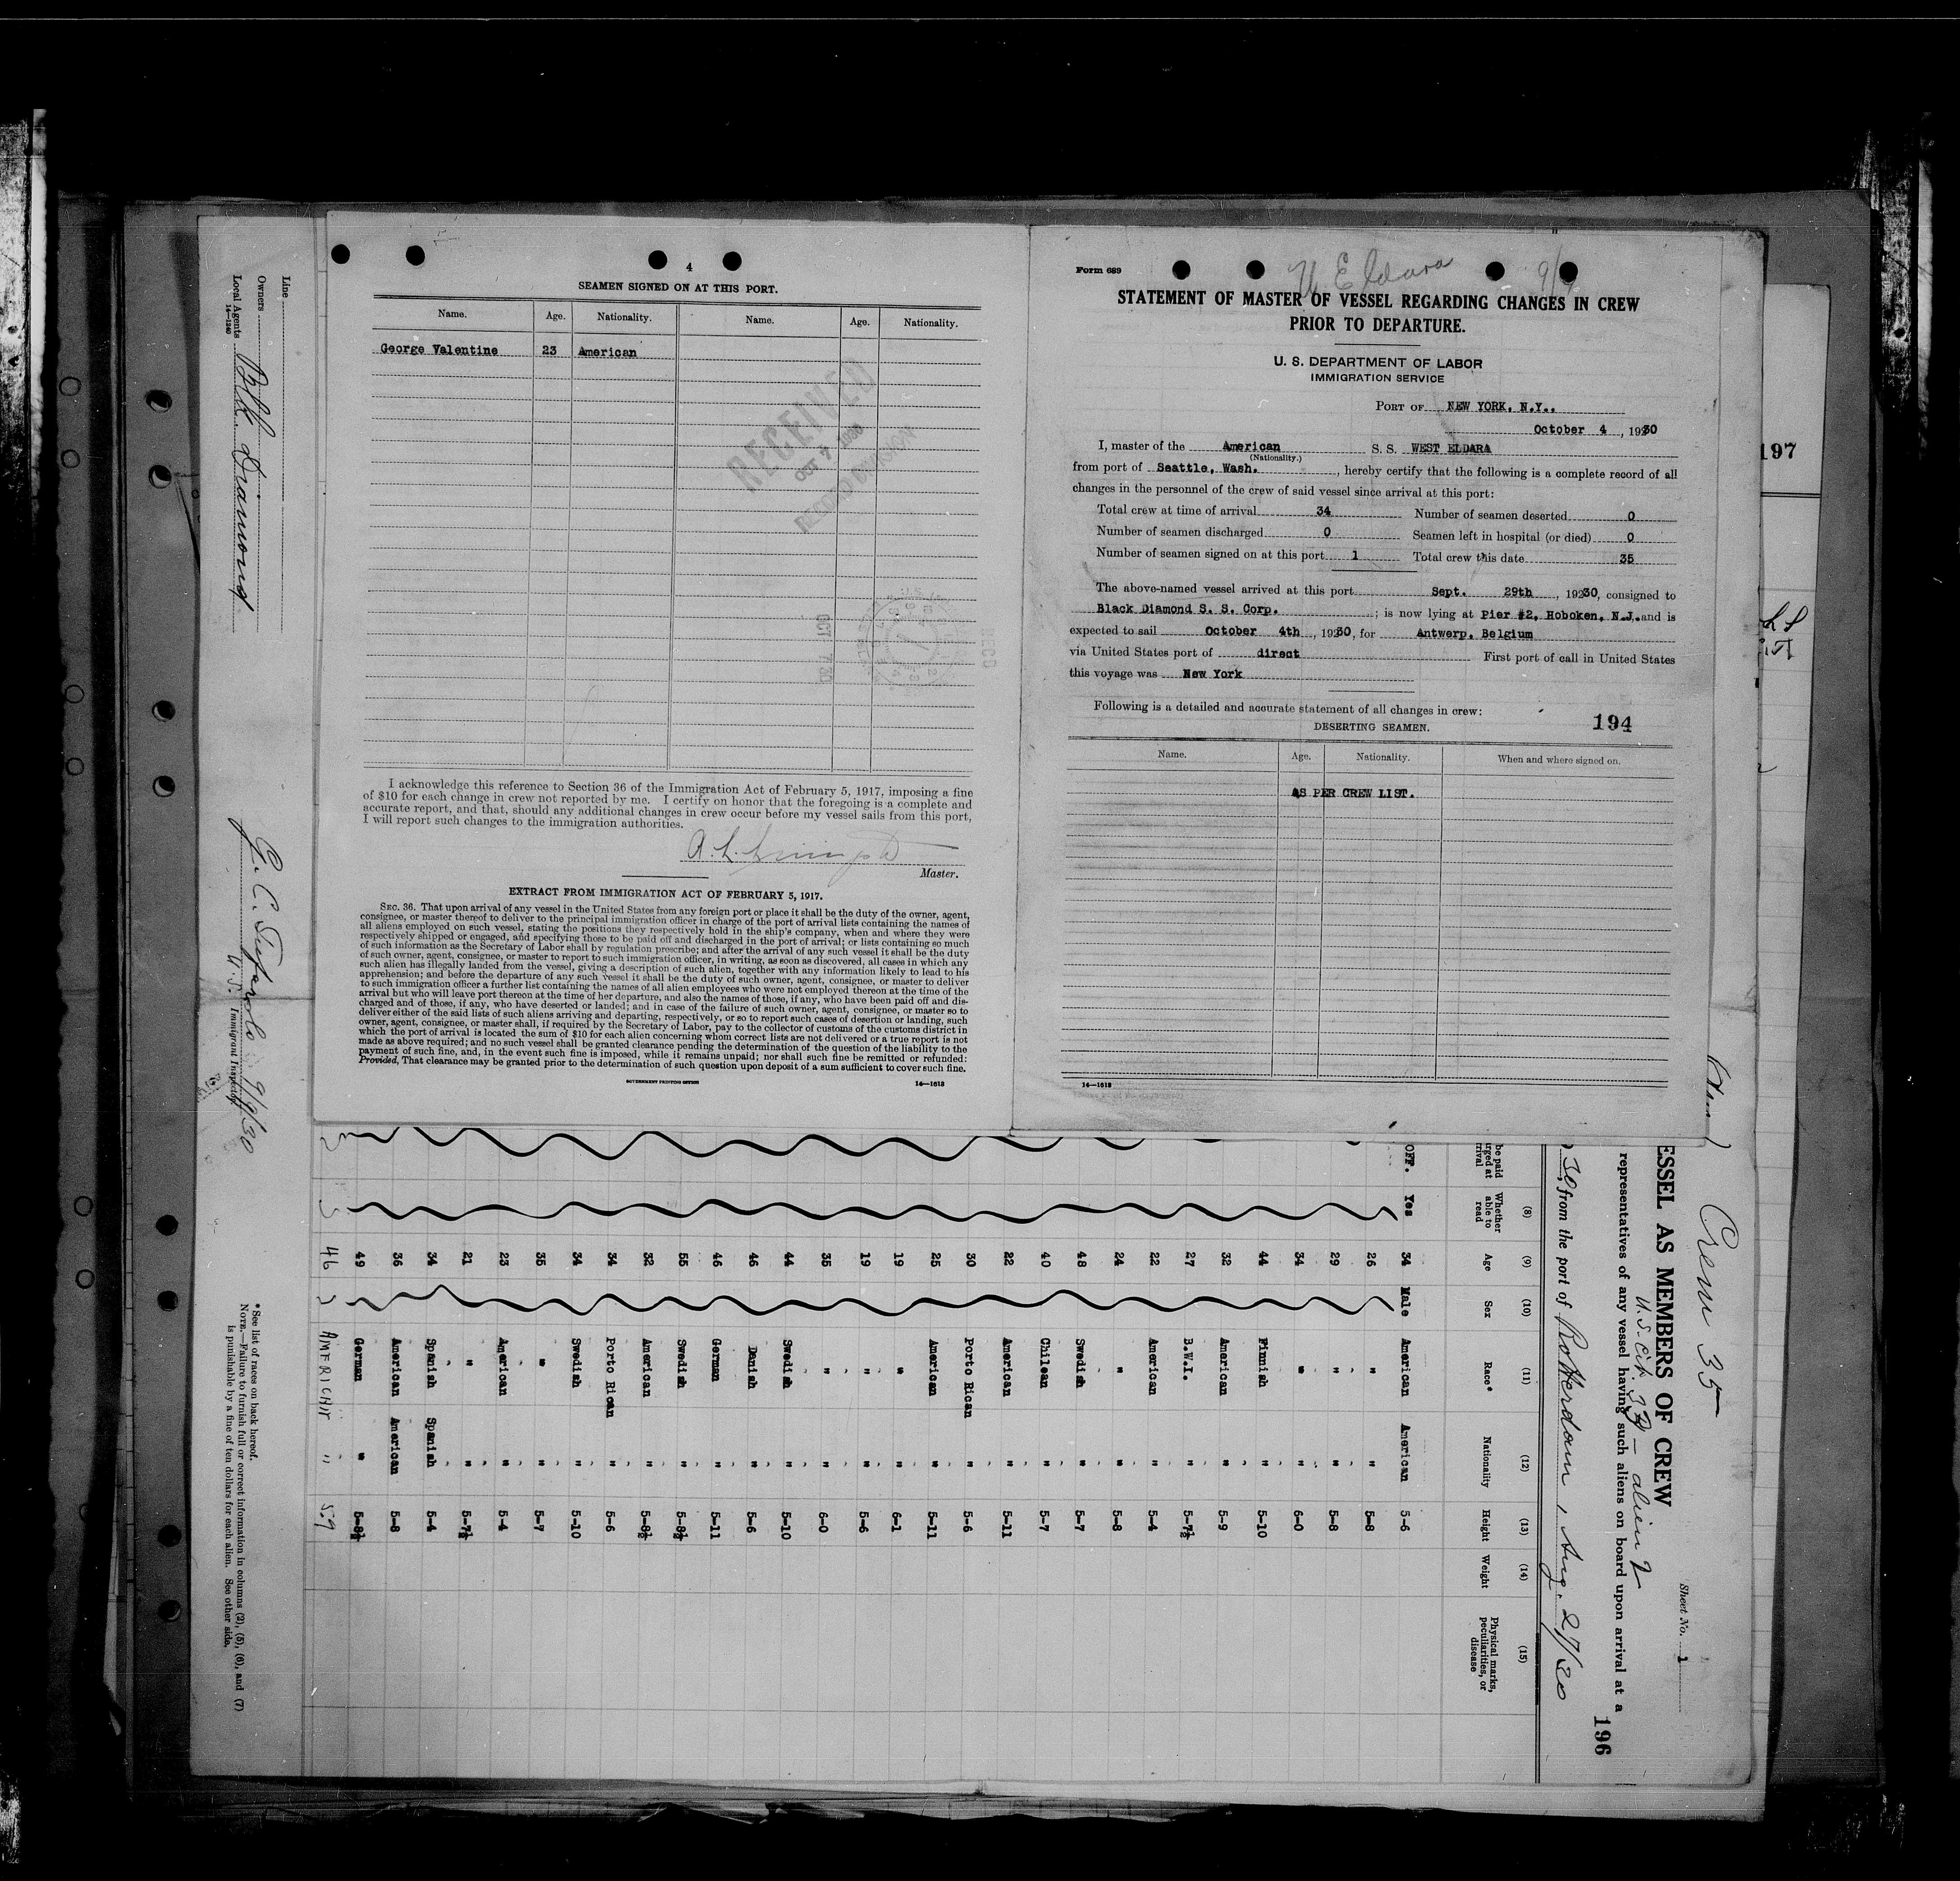 4
SEAMEN SIGNED ON AT THIS PORT.
Name. Age. Nationality. Name. Age. Nationality.
George Valentine 23 American
RECEIVED
OCT 7 1930
RECORD DIVISION
I acknowledge this reference to Section 36 of the Immigration Act of February 5, 1917, imposing a fine
of $10 for each change in crew not reported by me. I certify on honor that the foregoing is a complete and
accurate report, and that, should any additional changes in crew occur before my vessel sails from this port,
I will report such changes to the immigration authorities.
Master.
EXTRACT FROM IMMIGRATION ACT OF FEBRUARY 5, 1917.
SEC. 36. That upon arrival of any vessel in the United States from any foreign port or place it shall be the duty of the owner, agent,
consignee, or master thereof to deliver to the principal immigration officer in charge of the port of arrival lists containing the names of
all aliens employed on such vessel, stating the positions they respectively hold in the ship's company, when and where they were
respectively shipped or engaged, and specifying those to be paid off and discharged in the port of arrival; or lists containing so much
of such information as the Secretary of Labor shall by regulation prescribe; and after the arrival of any such vessel it shall be the duty
of such owner, agent, consignee, or master to report to such immigration officer, in writing, as soon as discovered, all cases in which any
such alien has illegally landed from the vessel, giving a description of such alien, together with any information likely to lead to his
apprehension; and before the departure of any such vessel it shall be the duty of such owner, agent, consignee, or master to deliver
to such immigration officer a further list containing the names of all alien employees who were not employed thereon at the time of the
arrival but who will leave port thereon at the time of her departure, and also the names of those, if any, who have been paid off and dis-
charged and of those, if any, who have deserted or landed; and in case of the failure of such owner, agent, consignee, or master so to
deliver either of the said lists of such aliens arriving and departing, respectively, or so to report such cases of desertion or landing, such
owner, agent, consignee, or master shall, if required by the Secretary of Labor, pay to the collector of customs of the customs district in
which the port of arrival is located the sum of $10 for each alien concerning whom correct lists are not delivered or a true report is not
made as above required; and no such vessel shall be granted clearance pending the determination of the question of the liability to the
payment of such fine, and, in the event such fine is imposed, while it remains unpaid; nor shall such fine be remitted or refunded:
Provided, That clearance may be granted prior to the determination of such question upon deposit of a sum sufficient to cover such fine.
GOVERNMENT PRINTING OFFICE 14—1613
Form 689
W Eldara
STATEMENT OF MASTER OF VESSEL REGARDING CHANGES IN CREW
PRIOR TO DEPARTURE.
U. S. DEPARTMENT OF LABOR
IMMIGRATION SERVICE
PORT OF NEW YORK, N.Y.,
October 4, 1930
I, master of the American S. S. WEST ELDARA
(Nationality.)
from port of Seattle, Wash., hereby certify that the following is a complete record of all
changes in the personnel of the crew of said vessel since arrival at this port:
Total crew at time of arrival 34 Number of seamen deserted 0
Number of seamen discharged 0 Seamen left in hospital (or died) 0
Number of seamen signed on at this port 1 Total crew this date 35
The above-named vessel arrived at this port Sept. 29th, 1930, consigned to
Black Diamond S. S. Corp.; is now lying at Pier #2, Hoboken, N.J. and is
expected to sail October 4th, 1930, for Antwerp, Belgium
via United States port of direct First port of call in United States
this voyage was New York
Following is a detailed and accurate statement of all changes in crew:
194
DESERTING SEAMEN.
Name. Age. Nationality. When and where signed on.
AS PER CREW LIST.
14—1613
197
Line
Owners
Local Agents Blk. Diamond
14—1240
U.S. Immigrant Inspector
9/9/30
* See list of races on back hereof.
NOTE.—Failure to furnish full or correct information in columns (2), (5), (6), and (7)
is punishable by a fine of ten dollars for each alien. See other side.
Crew 35
Sheet No. 1
ESSEL AS MEMBERS OF CREW
U.S. Cit. 33 – alien 2
representatives of any vessel having such aliens on board upon arrival at a
196
30, from the port of Rotterdam, Aug. 27/30
be paid
rged at
rival
(8) Whether able to read
(9) Age
(10) Sex
(11) Race*
(12) Nationality
(13) Height
(14) Weight
(15) Physical marks, peculiarities, or disease
OFF. Yes 34 Male American American 5-6
26 " " 5-8
29 " " 5-8
34 " " 6-0
44 Finnish " 5-10
32 American " 5-9
27 B.W.I. " 5-7½
22 American " 5-4
24 " " 5-8
48 Swedish " 5-7
40 Chilean " 5-7
22 American " 5-11
30 Porto Rican " 5-6
25 American " 5-11
19 " " 6-1
19 " " 5-6
35 " " 6-0
44 Swedish " 5-10
46 Danish " 5-6
46 German " 5-11
55 Swedish " 5-8½
32 American " 5-8½
34 Porto Rican " 5-6
34 Swedish " 5-10
35 " " 5-7
23 American " 5-4
21 " " 5-7½
34 Spanish Spanish 5-4
36 American American 5-8
49 German " 5-8½
46 AMERICAN " 5-9